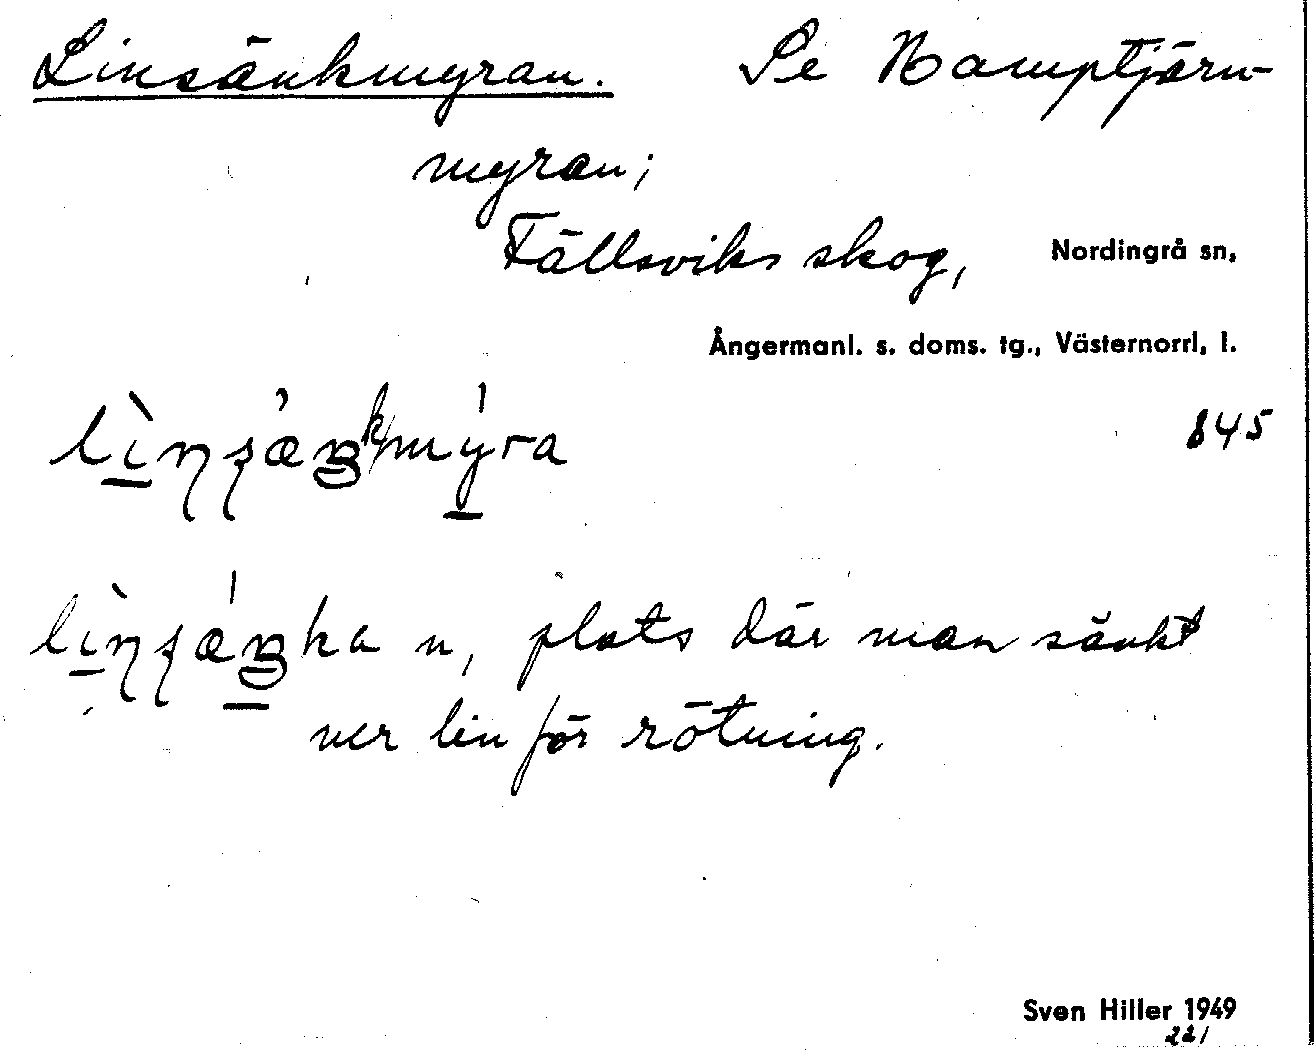 Linsänkmyran. Se Hamptjärn-
myran;
Fällsviks skog, Nordingrå sn,
Ångermanl. s. doms. tg., Västernorrl, l.
845
lìnsæŋkmýra
lìnsæŋka n, plats där man sänkt
ner lin för rötning.
Sven Hiller 1949
221